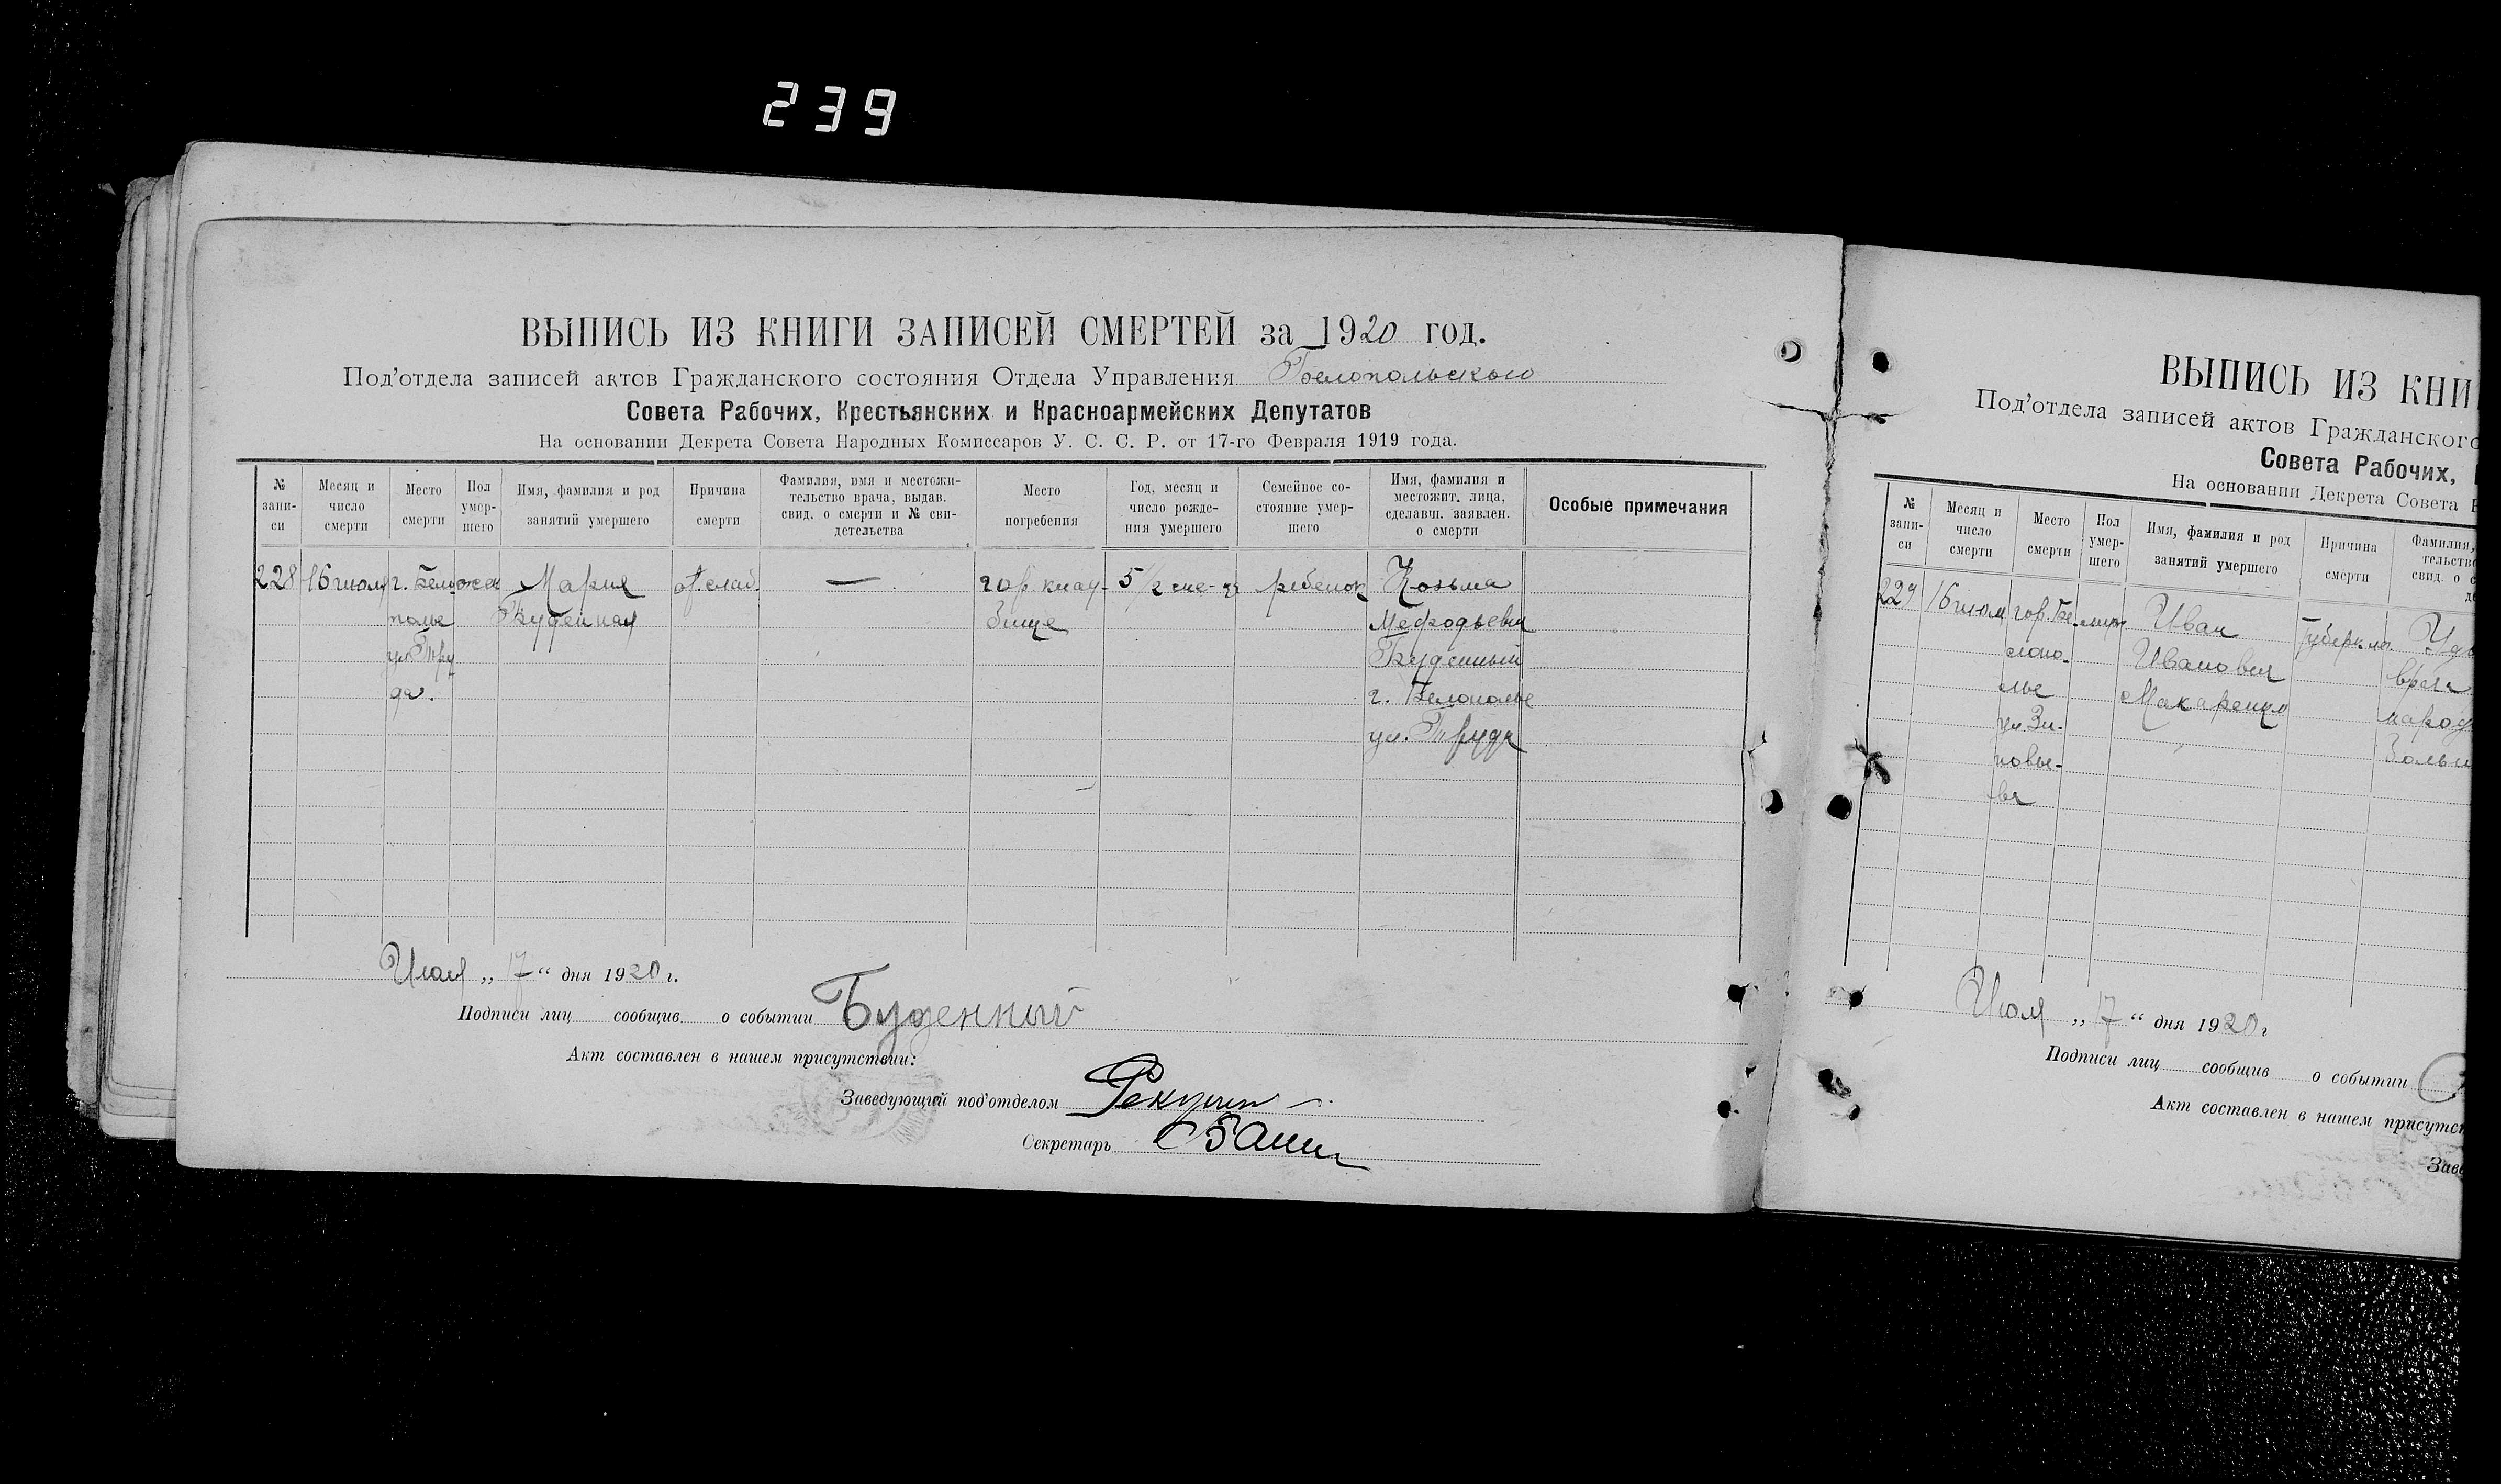 239
ВЫПИСЬ ИЗ КНИГИ ЗАПИСЕЙ СМЕРТЕЙ за 1920 год.
Под'отдела записей актов Гражданского состояния Отдела Управления Белопольского
Совета Рабочих, Крестьянских и Красноармейских Депутатов
На основании Декрета Совета Народных Комиссаров У. С. С. Р. от 17-го Февраля 1919 года.
№ запи-си
Месяц и число смерти
Место смерти
Пол умер-шего
Имя, фамилия и род занятий умершего
Причина смерти
Фамилия, имя и местожи-тельство врача, выдав. свид. о смерти и № сви-детельства
Место погребения
Год, месяц и число рожде-ния умершего
Семейное со-стояние умер-шего
Имя, фамилия и местожит. лица, сделавш. заявлен. о смерти
Особые примечания
228
16 июля
г. Бело
полье
ул. Тру
да.
жен
Мария
Буденная
от слаб.
—
гор клад-
бище
5 1/2 ме-ц
ребенок
Козьма
Мефодьевич
Буденный
г. Белополье
ул. Труда
Июля „ 17 “ дня 1920 г.
Подписи лиц сообщив о событии Буденный
Акт составлен в нашем присутствии:
Заведующий под'отделом
Секретарь
ВЫПИСЬ ИЗ КНИ
Под'отдела записей актов Гражданского
Совета Рабочих,
На основании Декрета Совета
№ запи-си
Месяц и число смерти
Место смерти
Пол умер-шего
Имя, фамилия и род занятий умершего
Причина смерти
Фамилия,
тельство
свид. о с
229
16 июля
гор. Бе
лопо-
лье
ул. Зи-
новье-
ва
Иван
Иванович
Макаренко
Туберкул.
врача
народ
Больн
Июля „ 17 “ дня 1920 г
Подписи лиц сообщив о событии
Акт составлен в нашем присутст
Заве